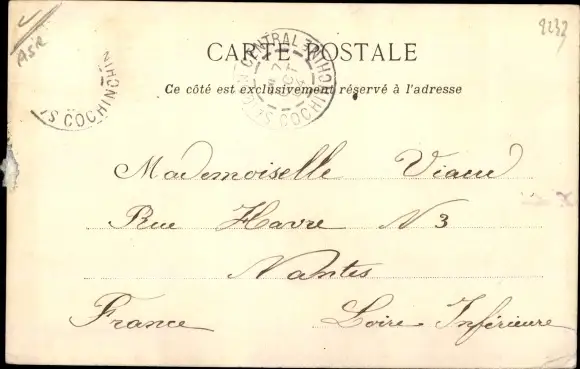 ASR
9232
CARTE POSTALE
Ce côté est exclusivement réservé à l'adresse
CENTRAL COCHINCHINE
COCHINCHIN
Mademoiselle Viaud
Rue Havre N 3
Nantes
France Loire Inférieure